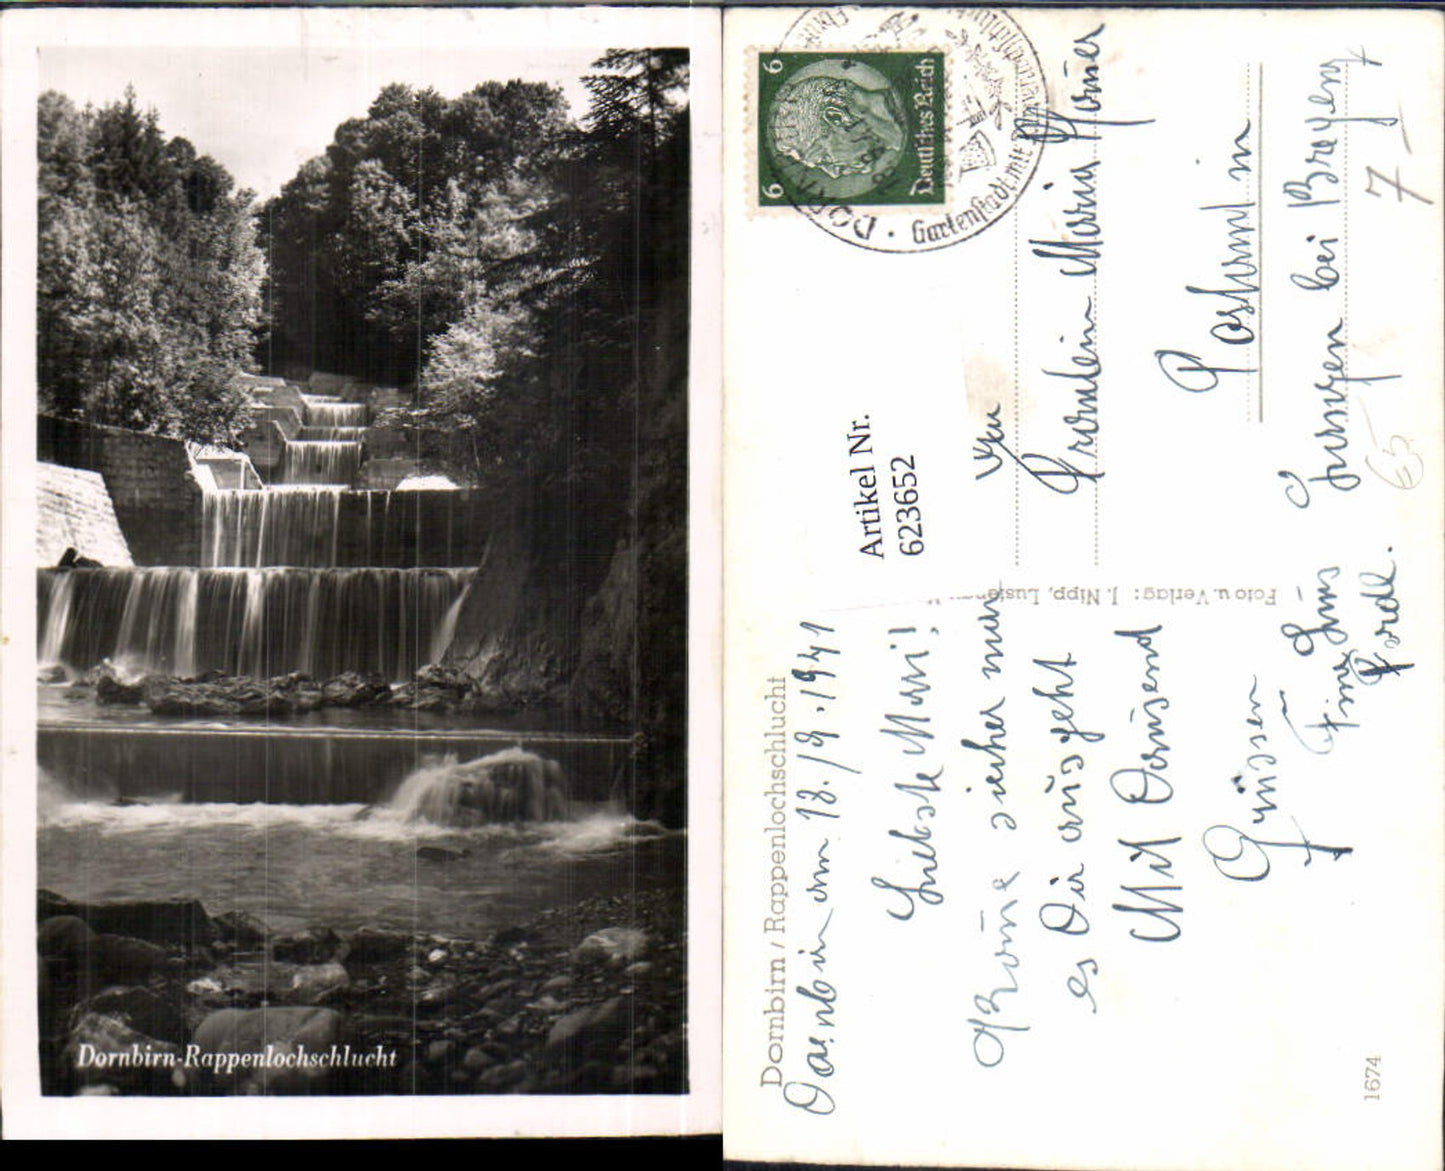 Dornbirn-Rappenlochschlucht
Dornbirn / Rappenlochschlucht
Dornbirn am 18./9.1941
Liebste Mari!
sicher nur
es Dir ausgeht
Mit Tausend
Grüssen
Artikel Nr.
623652
6
6
Deutsches Reich
DORNBIRN
Gartenstadt mit
An
Fräulein Maria
Postamt in
bei Bregenz
7
65
Foto u. Verlag: J. Nipp, Lustenau
1674